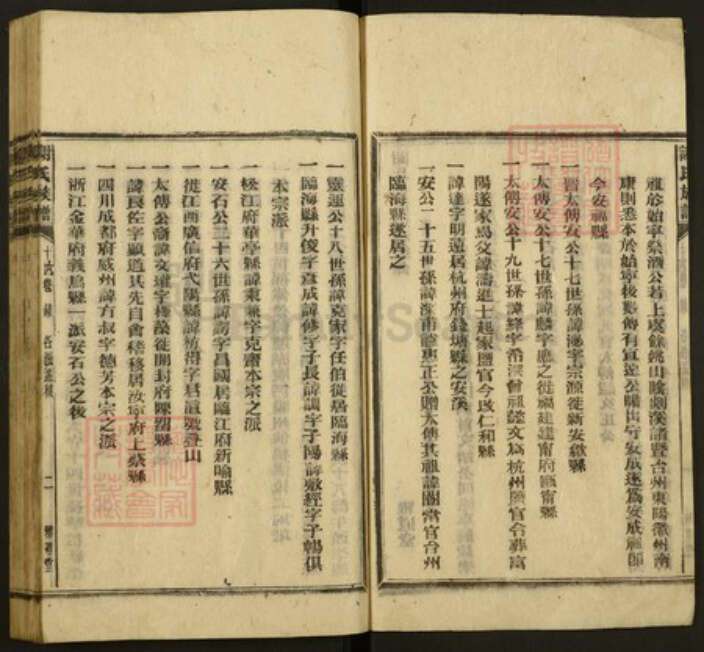 雅於始寧祭酒公若上虞餘姚山陰剡溪諸暨台州東陽徽州南
康則悉本於始寧後數傳有宣遠公暘出守安成遂爲安成祖即
今安福縣
一晉太傅安公十七世孫諱泌字宗源徙新安歙縣
一太傅安公十七世孫諱麟字應之徙福建建甯府甌甯縣
一太傅安公十九世孫諱絳字希深曾祖懿文爲杭州鹽官令葬富
陽遂家焉父諱濤進士起家鹽官今改仁和縣
一諱達字明遠居杭州府錢塘縣之安溪
一安公二十五世孫諱深甫諡惠正公贈太傅其祖諱闓當官台州
臨海縣遂居之
一靈運公十八世孫諱克家字任伯徙居臨海縣
一臨海縣升俊字彥成諱修字子長諱調字子陽諱敷經字子暢俱
本宗派
一松江府華亭縣諱東兼字克齋本宗之派
一安石公二十六世孫諱諤字昌國居臨江府新喻縣
一徙江西廣信府弋陽縣諱枋得字君直號疊山
一太傅公裔諱文瓘字梯藻徙開封府陳留縣
一諱良佐字顯道其先自會稽移居汝寧府上蔡縣
一四川成都府威州諱方叔字德芳本宗之派
一浙江金華府義烏縣一派安石公之後
謝氏族譜
十六卷 錄
二
謝氏族譜